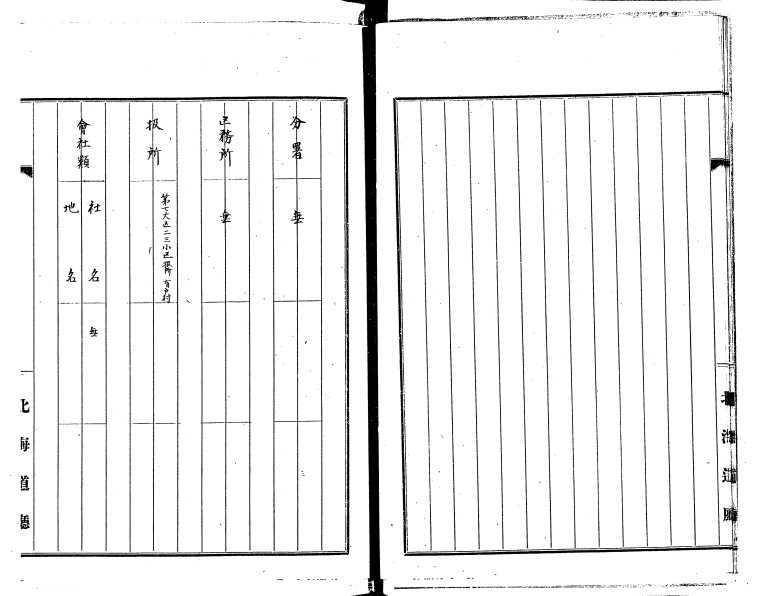 分署
無
区務所
無
扱所
第七大区二三小区扱所 有戸村
會社類
社名 無
地名
北海道廳
北海道廳